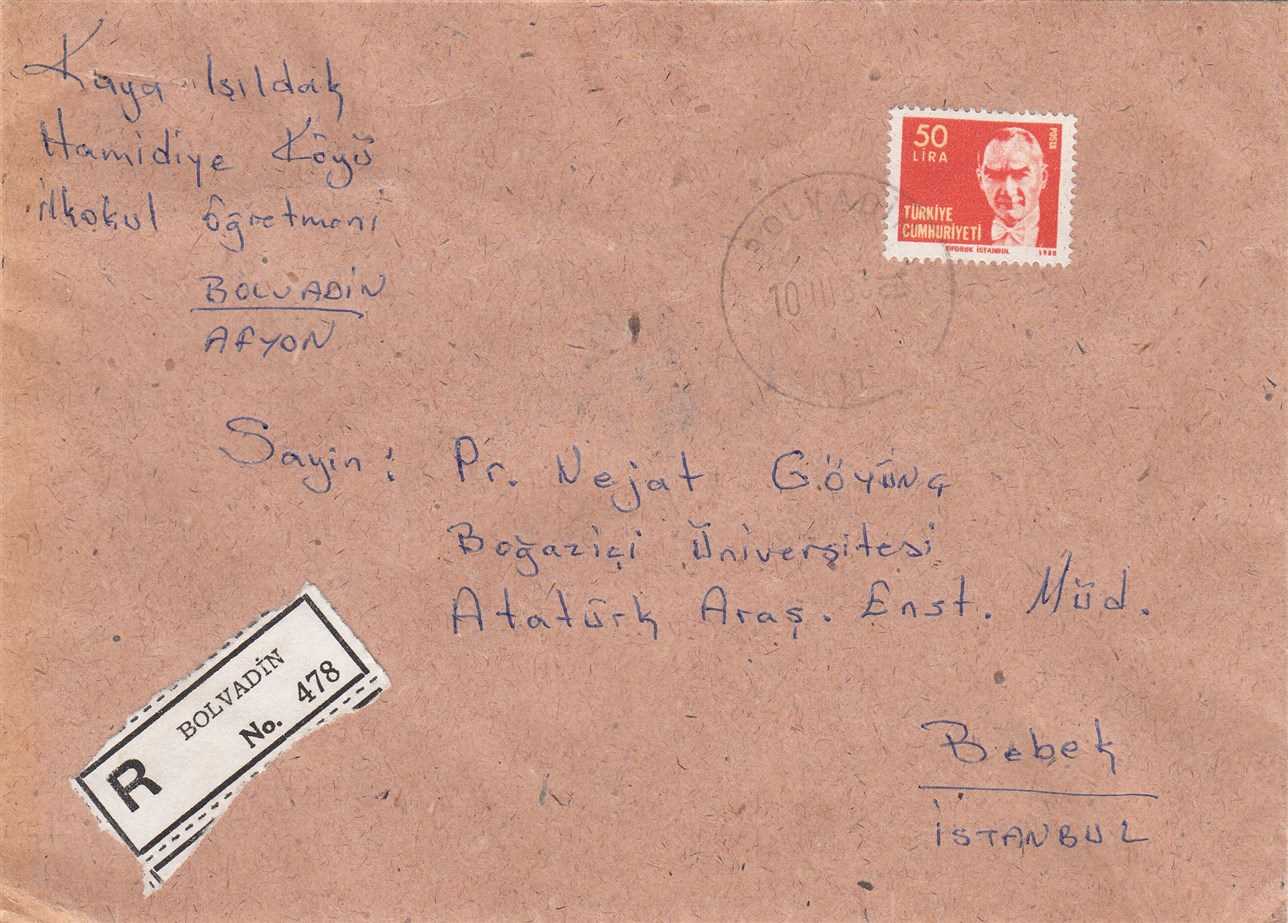 Kaya Işıldak
Hamidiye Köyü
ilkokul öğretmeni
BOLVADİN
AFYON
50
LİRA
POSTA
TÜRKİYE
CUMHURİYETİ
İSTANBUL
BOLVAD
10 III
Sayin: Pr. Nejat GÖYÜNÇ
Boğaziçi Üniverşitesi
Atatürk Araş. Enst. Müd.
Bebek
İSTANBUL
R BOLVADİN
No. 478